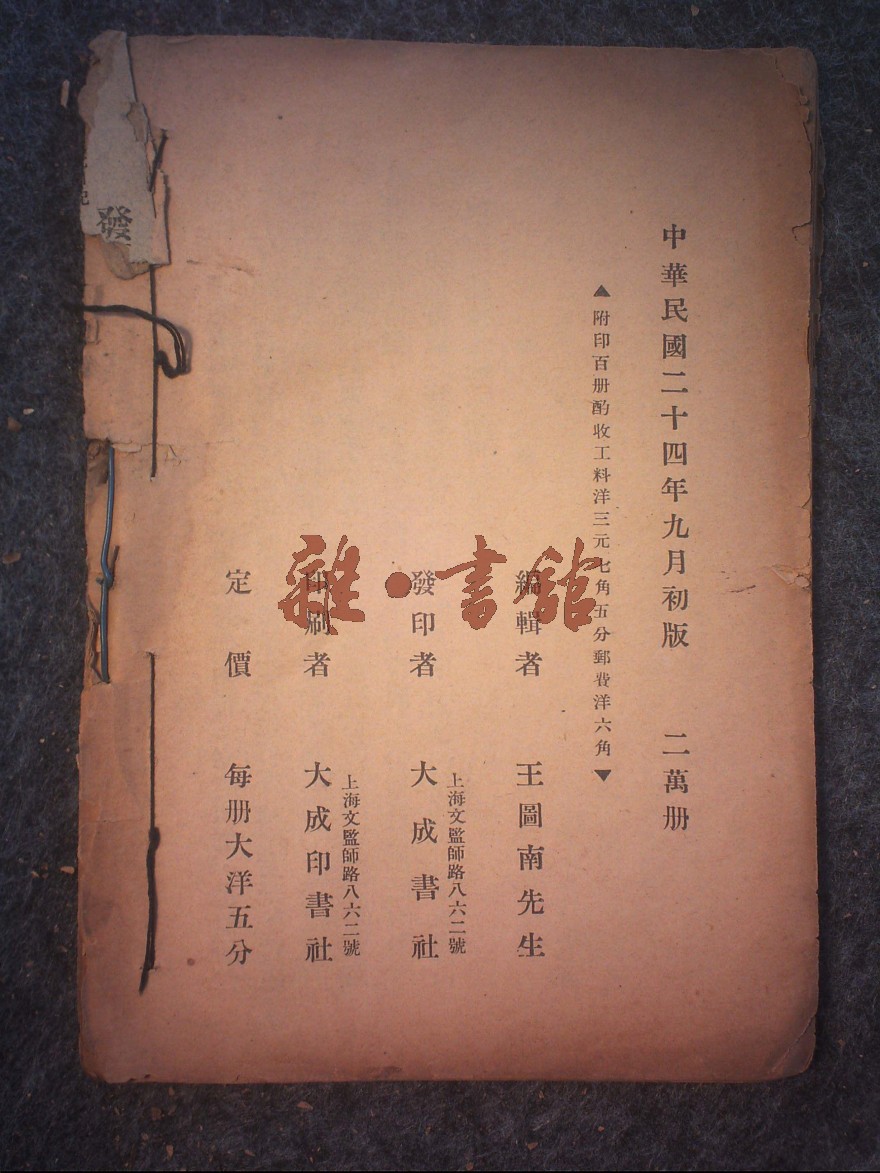 中華民國二十四年九月初版　二萬册
▲附印百册酌收工料洋三元七角五分郵費洋六角▼
編輯者　王圖南先生
上海文監師路八六二號
發印者　大成書社
上海文監師路八六二號
印刷者　大成印書社
定價　每册大洋五分
發
雜·書館